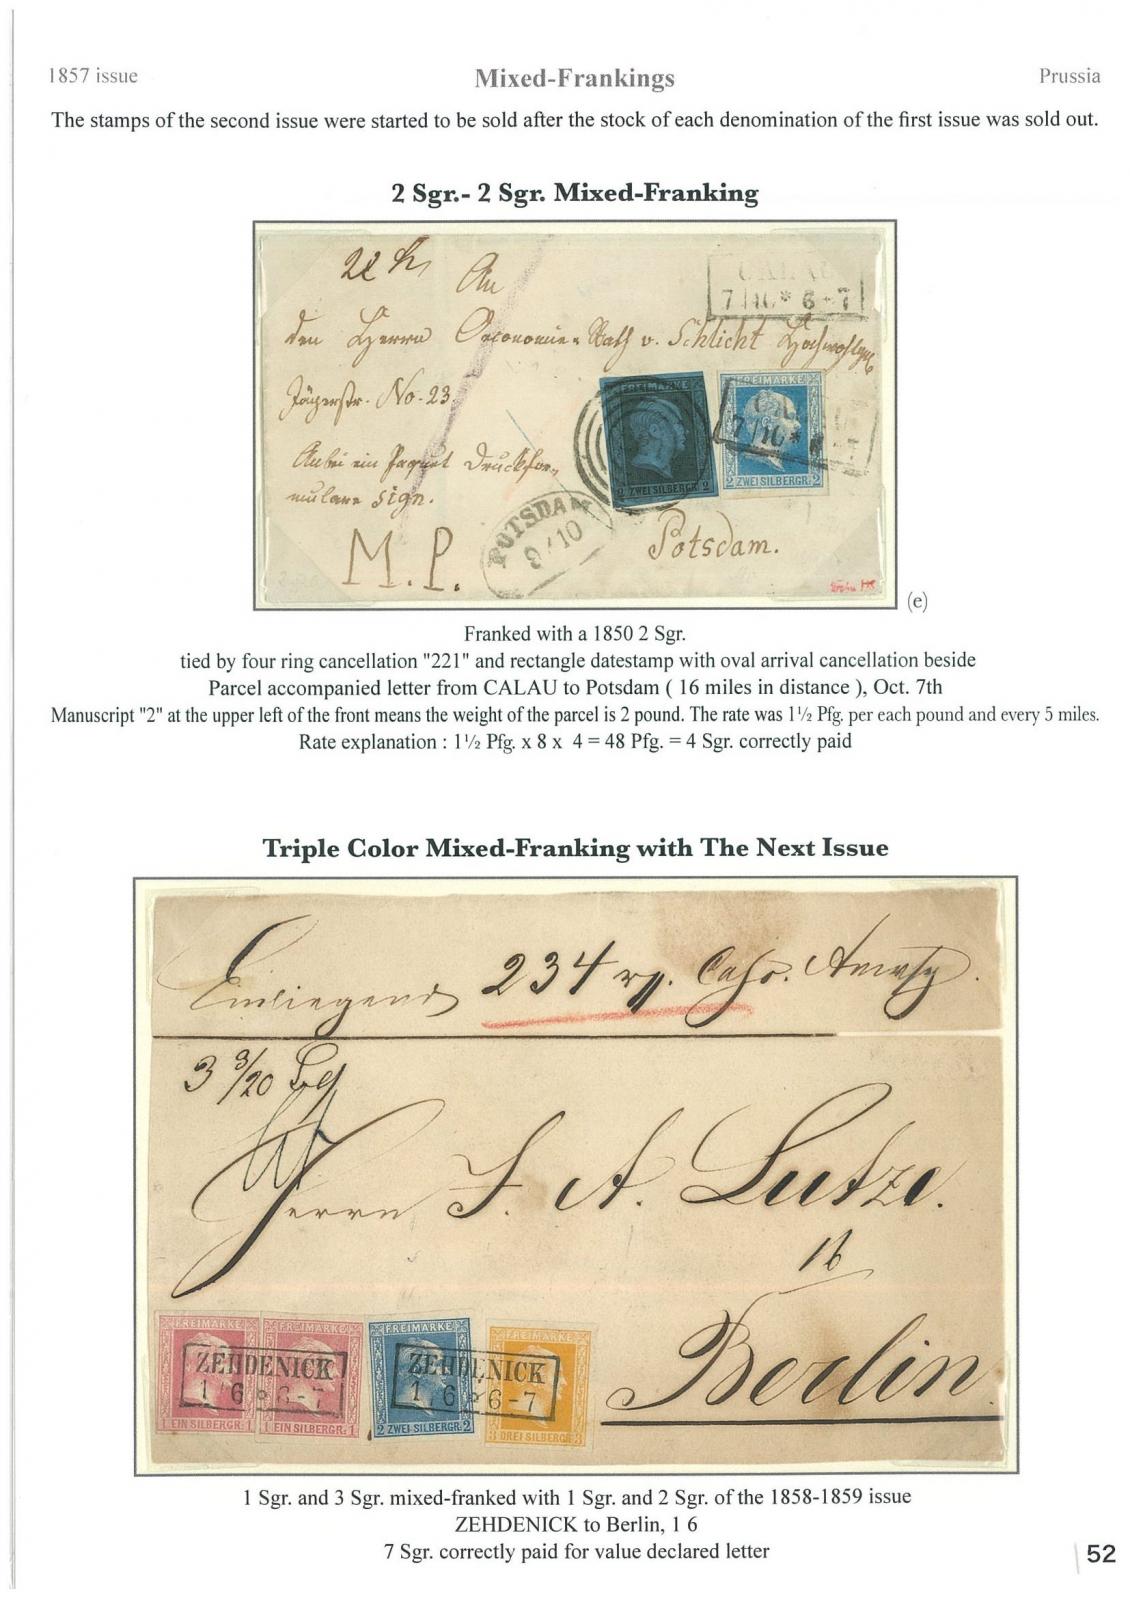 1857 issue
Mixed-Frankings
Prussia
The stamps of the second issue were started to be sold after the stock of each denomination of the first issue was sold out.
2 Sgr.- 2 Sgr. Mixed-Franking
An
7/10 * 6-7
den Herrn Oeconomie-Rath v. Schlicht
Jägerstr. No. 23
FREIMARKE
FREIMARKE
7/10 *
Anbei ein Paquet Druckfor-
mulare sign.
2 ZWEI SILBERGR. 2
2 ZWEI SILBERGR. 2
POTSDAM
9/10
M. P.
Potsdam.
(e)
Franked with a 1850 2 Sgr.
tied by four ring cancellation "221" and rectangle datestamp with oval arrival cancellation beside
Parcel accompanied letter from CALAU to Potsdam ( 16 miles in distance ), Oct. 7th
Manuscript "2" at the upper left of the front means the weight of the parcel is 2 pound. The rate was 1½ Pfg. per each pound and every 5 miles.
Rate explanation : 1½ Pfg. x 8 x 4 = 48 Pfg. = 4 Sgr. correctly paid
Triple Color Mixed-Franking with The Next Issue
Einliegend 234
3 3/20
Herrn F. A. Lutze.
16
Berlin
FREIMARKE
FREIMARKE
FREIMARKE
FREIMARKE
ZEHDENICK
1 6 * 6-7
ZEHDENICK
1 6 * 6-7
1 EIN SILBERGR. 1
1 EIN SILBERGR. 1
2 ZWEI SILBERGR. 2
3 DREI SILBERGR. 3
1 Sgr. and 3 Sgr. mixed-franked with 1 Sgr. and 2 Sgr. of the 1858-1859 issue
ZEHDENICK to Berlin, 1 6
7 Sgr. correctly paid for value declared letter
52